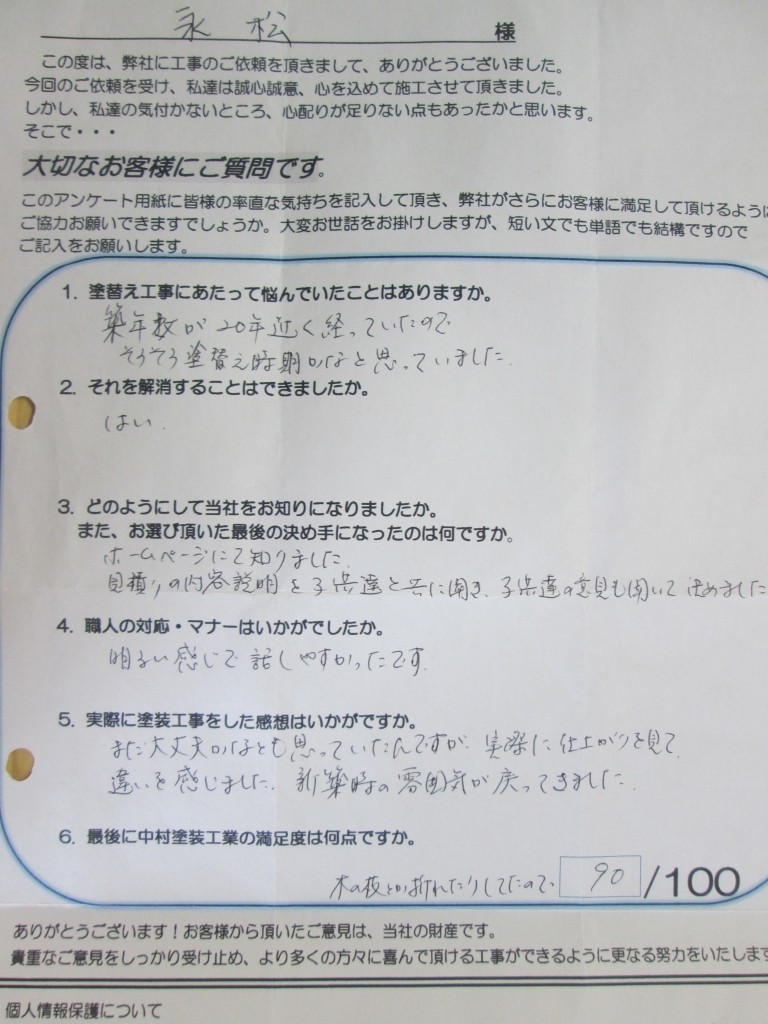 永松 様
この度は、弊社に工事のご依頼を頂きまして、ありがとうございました。
今回のご依頼を受け、私達は誠心誠意、心を込めて施工させて頂きました。
しかし、私達の気付かないところ、心配りが足りない点もあったかと思います。
そこで・・・
大切なお客様にご質問です。
このアンケート用紙に皆様の率直な気持ちを記入して頂き、弊社がさらにお客様に満足して頂けるように
ご協力お願いできますでしょうか。大変お世話をお掛けしますが、短い文でも単語でも結構ですので
ご記入をお願いします。
1. 塗替え工事にあたって悩んでいたことはありますか。
築年数が20年近く経っていたので
そろそろ塗替え時期かなと思っていました。
2. それを解消することはできましたか。
はい.
3. どのようにして当社をお知りになりましたか。
また、お選び頂いた最後の決め手になったのは何ですか。
ホームページにて知りました.
見積りの内容説明を子供達と共に聞き、子供達の意見も聞いて決めました
4. 職人の対応・マナーはいかがでしたか。
明るい感じで話しやすかったです.
5. 実際に塗装工事をした感想はいかがですか。
まだ大丈夫かなとも思っていたんですが、実際に仕上がりを見て
違いを感じました. 新築時の雰囲気が戻ってきました.
6. 最後に中村塗装工業の満足度は何点ですか。
木の枝とか折れたりしてたので 90 /100
ありがとうございます！お客様から頂いたご意見は、当社の財産です。
貴重なご意見をしっかり受け止め、より多くの方々に喜んで頂ける工事ができるように更なる努力をいたします
個人情報保護について